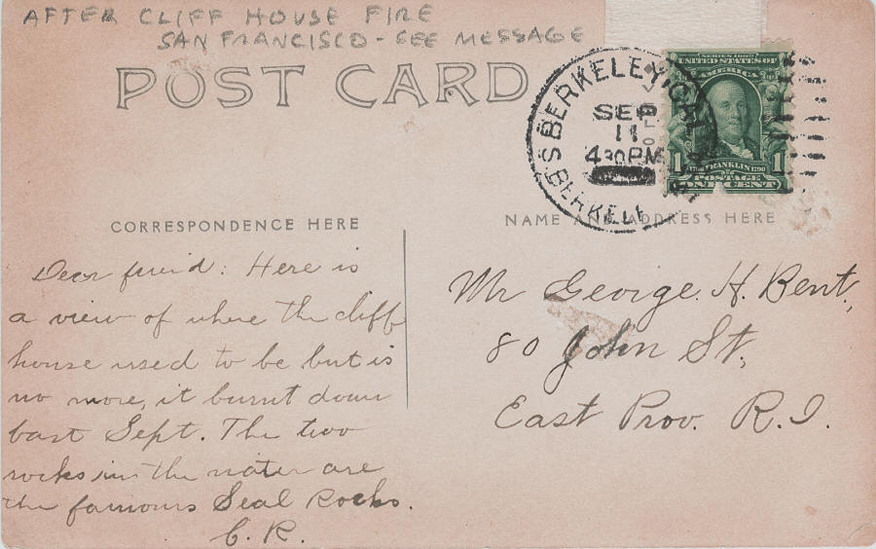 AFTER CLIFF HOUSE FIRE
SAN FRANCISCO - SEE MESSAGE
POST CARD
BERKELEY
SEP
11
430 PM
BERKELEY
SERIES 1902
UNITED STATES OF
AMERICA
1 FRANKLIN 1790 1
POSTAGE
ONE CENT
CORRESPONDENCE HERE
NAME AND ADDRESS HERE
Dear friend: Here is
a view of where the cliff
house used to be but is
no more, it burnt down
last Sept. The two
rocks in the water are
the famous Seal Rocks.
C. R.
Mr George. H. Bent,
80 John St,
East Prov. R.I.